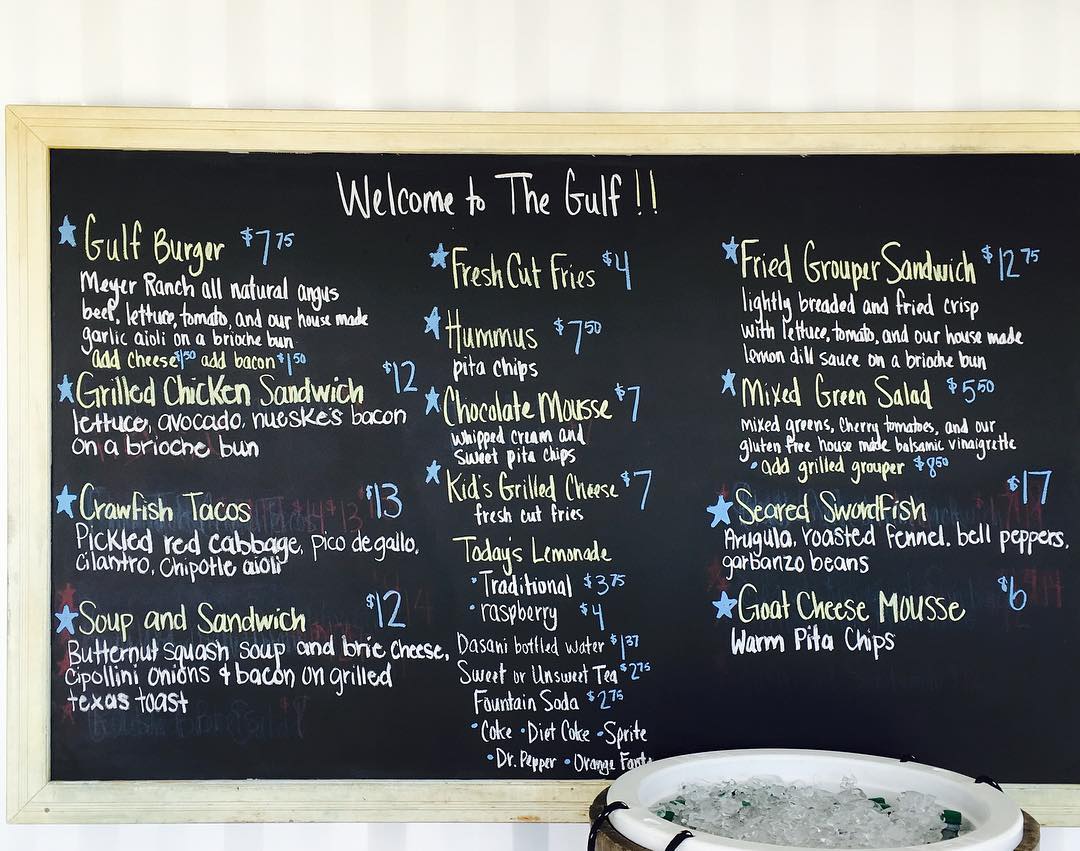 Welcome to The Gulf!!
Gulf Burger $7.75
Meyer Ranch all natural angus
beef, lettuce, tomato, and our house made
garlic aioli on a brioche bun
add cheese $1.50 add bacon $1.50
Grilled Chicken Sandwich $12
lettuce, avocado, nueske's bacon
on a brioche bun
Crawfish Tacos $13
Pickled red cabbage, pico de gallo,
cilantro, Chipotle aioli
Soup and Sandwich $12
Butternut squash soup and brie cheese,
Cipollini onions & bacon on grilled
texas toast
Fresh Cut Fries $4
Hummus $7.50
pita chips
Chocolate Mousse $7
whipped cream and
Sweet pita chips
Kid's Grilled Cheese $7
fresh cut fries
Today's Lemonade
• Traditional $3.75
• raspberry $4
Dasani bottled water $1.37
Sweet or Unsweet Tea $2.75
Fountain Soda $2.75
• Coke • Diet Coke • Sprite
• Dr. Pepper • Orange Fanta
Fried Grouper Sandwich $12.75
lightly breaded and fried crisp
with lettuce, tomato, and our house made
lemon dill sauce on a brioche bun
Mixed Green Salad $5.50
mixed greens, Cherry tomatoes, and our
gluten free house made balsamic vinaigrette
• add grilled grouper $8.50
Seared Swordfish $17
Arugula, roasted Fennel, bell peppers,
garbanzo beans
Goat Cheese Mousse $6
Warm Pita Chips